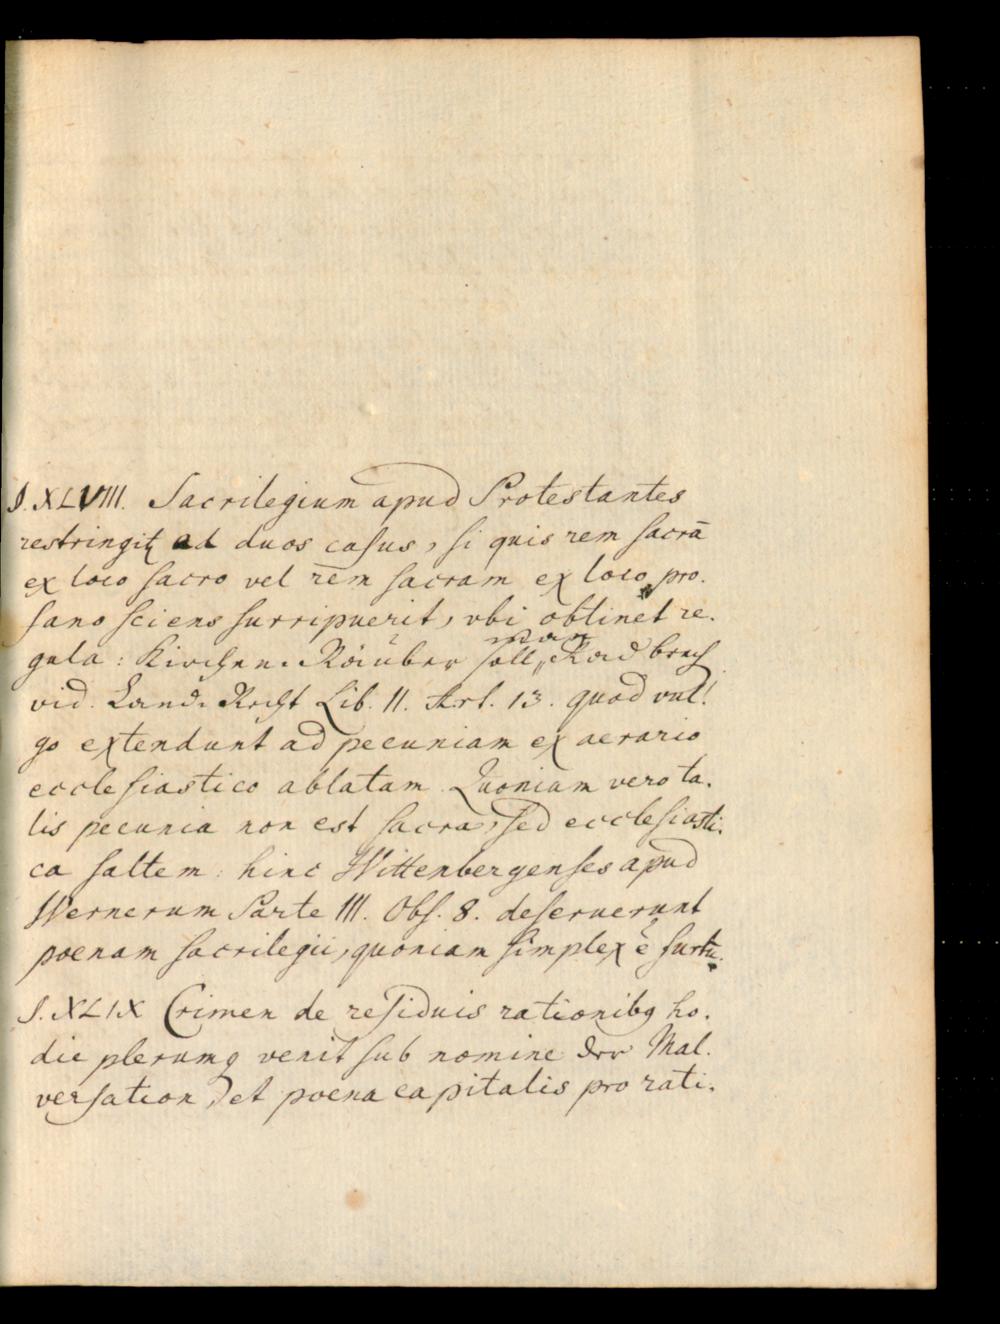 §. XLVIII. Sacrilegium apud Protestantes
restringitꝫ ad duos casus, si quis rem sacrā
ex loco sacro vel rem sacram ex loco pro.
fano sciens surripuerit, vbi obtinet re.
gula: Kirchen-Räuber soll man Rad brech
vid. Land-Recht Lib. II. Art. 13. quod vul.
go extendunt ad pecuniam ex aerario
ecclesiastico ablatam. Quoniam vero ta.
lis pecunia non est sacra, sed ecclesiasti.
ca saltem: hinc Wittenbergenses apud
Wernerum Parte III. Obs. 8. deseruerunt
poenam sacrilegii, quoniam simplex ē furtū.
§. XLIX Crimen de residuis rationibꝫ ho.
die plerumq venit sub nomine der Mal.
versation, et poena capitalis pro rati.